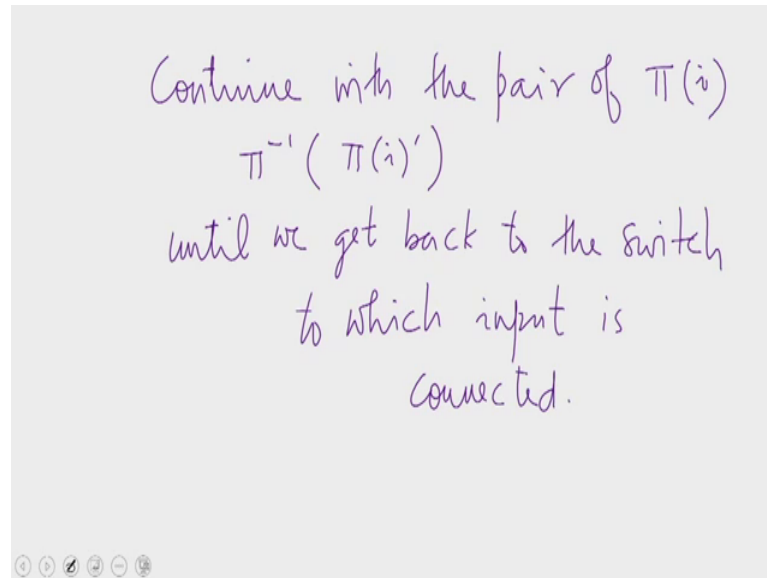 Continue with the pair of π(i)
π⁻¹( π(i)′)
until we get back to the switch
to which input is
connected.